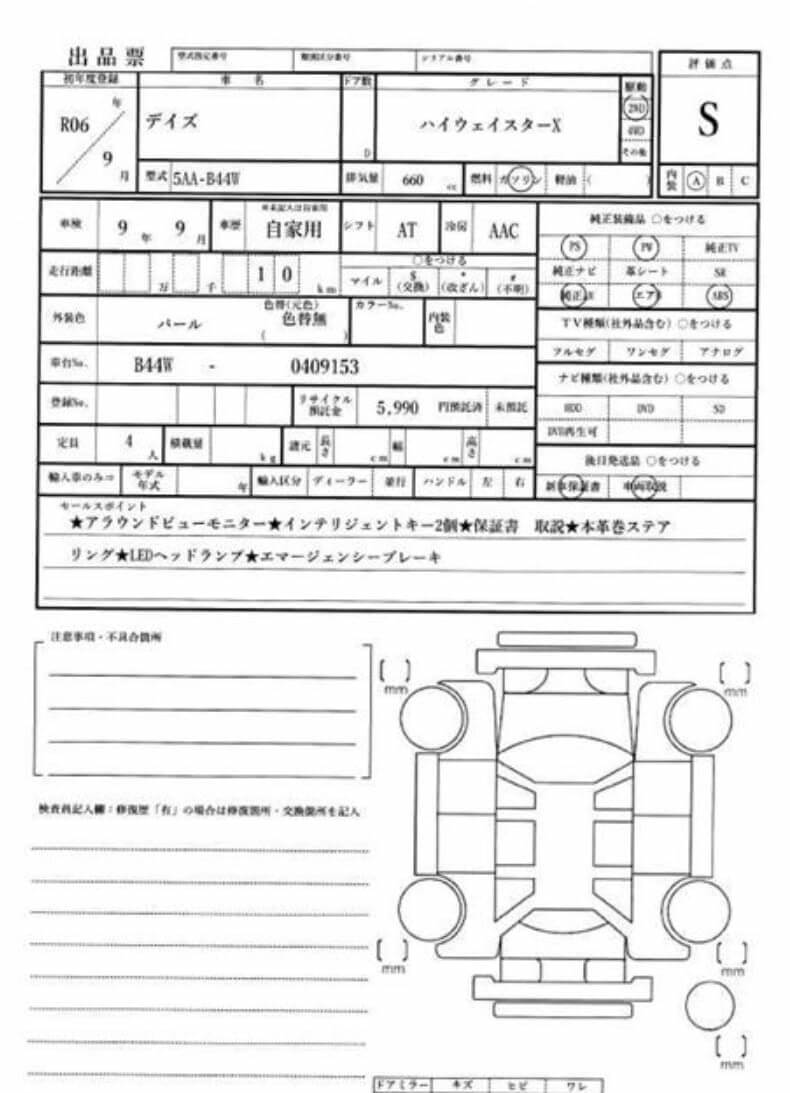 出品票 型式指定番号 類別区分番号 シリアル番号
初年度登録 車名 ドア数 グレード 駆動 評価点
R06 年 9 月 デイズ D ハイウェイスターX 2WD 4WD その他 S
型式 5AA-B44W 排気量 660 cc 燃料 ガソリン 軽油 ( ) 内装 A B C
車検 9 年 9 月 車歴 ※未記入は自家用 自家用 シフト AT 冷房 AAC
純正装備品 ○をつける
PS PW 純正TV
純正ナビ 革シート SR
エアB ABS
走行距離 万 千 1 0 km ○をつける マイル $ (交換) * (改ざん) # (不明)
外装色 パール 色替(元色) 色替無 ( ) カラーNo. 内装色
TV種類(社外品含む) ○をつける
フルセグ ワンセグ アナログ
車台No. B44W - 0409153
ナビ種類(社外品含む) ○をつける
HDD DVD SD
DVD再生可
登録No. リサイクル預託金 5,990 円預託済 未預託
定員 4 人 積載量 kg 諸元 長さ cm 幅 cm 高さ cm
後日発送品 ○をつける
新車保証書 車両取説
輸入車のみコ モデル年式 年 輸入区分 ディーラー 並行 ハンドル 左 右
セールスポイント
★アラウンドビューモニター★インテリジェントキー2個★保証書 取説★本革巻ステア
リング★LEDヘッドランプ★エマージェンシーブレーキ
注意事項・不具合箇所
[ ] mm [ ] mm
検査員記入欄:修復歴「有」の場合は修復箇所・交換箇所を記入
[ ] mm [ ] mm
[ ] mm
ドアミラー キズ ヒビ ワレ